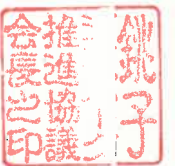 銚子
推進協議
会長之印